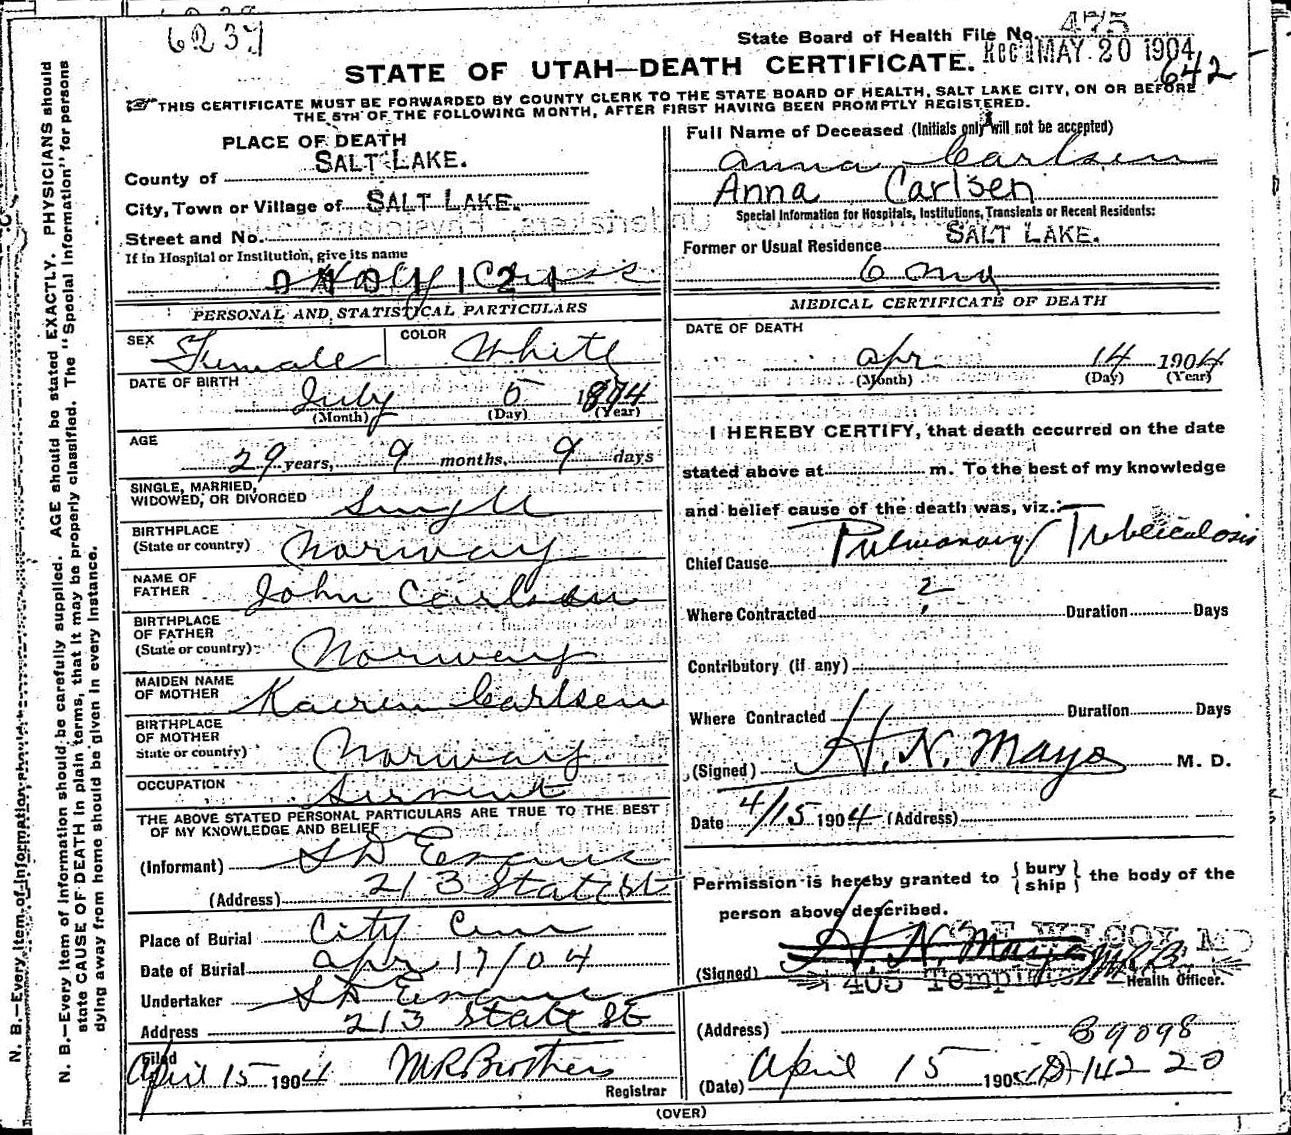 6237
State Board of Health File No. 475
Rec'd MAY 20 1904
642
STATE OF UTAH—DEATH CERTIFICATE.
THIS CERTIFICATE MUST BE FORWARDED BY COUNTY CLERK TO THE STATE BOARD OF HEALTH, SALT LAKE CITY, ON OR BEFORE
THE 5TH OF THE FOLLOWING MONTH, AFTER FIRST HAVING BEEN PROMPTLY REGISTERED.
N. B.—Every Item of Information should be carefully supplied. AGE should be stated EXACTLY. PHYSICIANS should
state CAUSE OF DEATH in plain terms, that it may be properly classified. The "Special Information" for persons
dying away from home should be given in every instance.
PLACE OF DEATH
County of SALT LAKE.
City, Town or Village of SALT LAKE.
Street and No.
If in Hospital or Institution, give its name
Holy Cross
PERSONAL AND STATISTICAL PARTICULARS
SEX Female COLOR White
DATE OF BIRTH
July 5 1874
(Month) (Day) (Year)
AGE
29 years, 9 months, 9 days
SINGLE, MARRIED,
WIDOWED, OR DIVORCED Single
BIRTHPLACE
(State or country) Norway
NAME OF
FATHER John Carlsen
BIRTHPLACE
OF FATHER
(State or country) Norway
MAIDEN NAME
OF MOTHER Kairen Carlsen
BIRTHPLACE
OF MOTHER
State or country) Norway
OCCUPATION Servent
THE ABOVE STATED PERSONAL PARTICULARS ARE TRUE TO THE BEST
OF MY KNOWLEDGE AND BELIEF
(Informant) S D Evans
(Address) 213 State St
Place of Burial City Cem
Date of Burial Apr 17/04
Undertaker S D Evans
Address 213 State St
Filed
April 15 1904 M R Brothers
Registrar
Full Name of Deceased (Initials only will not be accepted)
Anna Carlsen
Anna Carlsen
Special Information for Hospitals, Institutions, Transients or Recent Residents:
Former or Usual Residence SALT LAKE.
6
MEDICAL CERTIFICATE OF DEATH
DATE OF DEATH
Apr 14 1904
(Month) (Day) (Year)
I HEREBY CERTIFY, that death occurred on the date
stated above at m. To the best of my knowledge
and belief cause of the death was, viz.:
Chief Cause Pulmonary Trebliculosis
Where Contracted ? Duration Days
Contributory (if any)
Where Contracted Duration Days
(Signed) H. N. Mayo M. D.
Date 4/15 1904 (Address)
Permission is hereby granted to { bury ship } the body of the
person above described.
(Signed) H. N. Mayo
Health Officer.
(Address)
B9098
(Date) April 15 1905 D-142 20
(OVER)